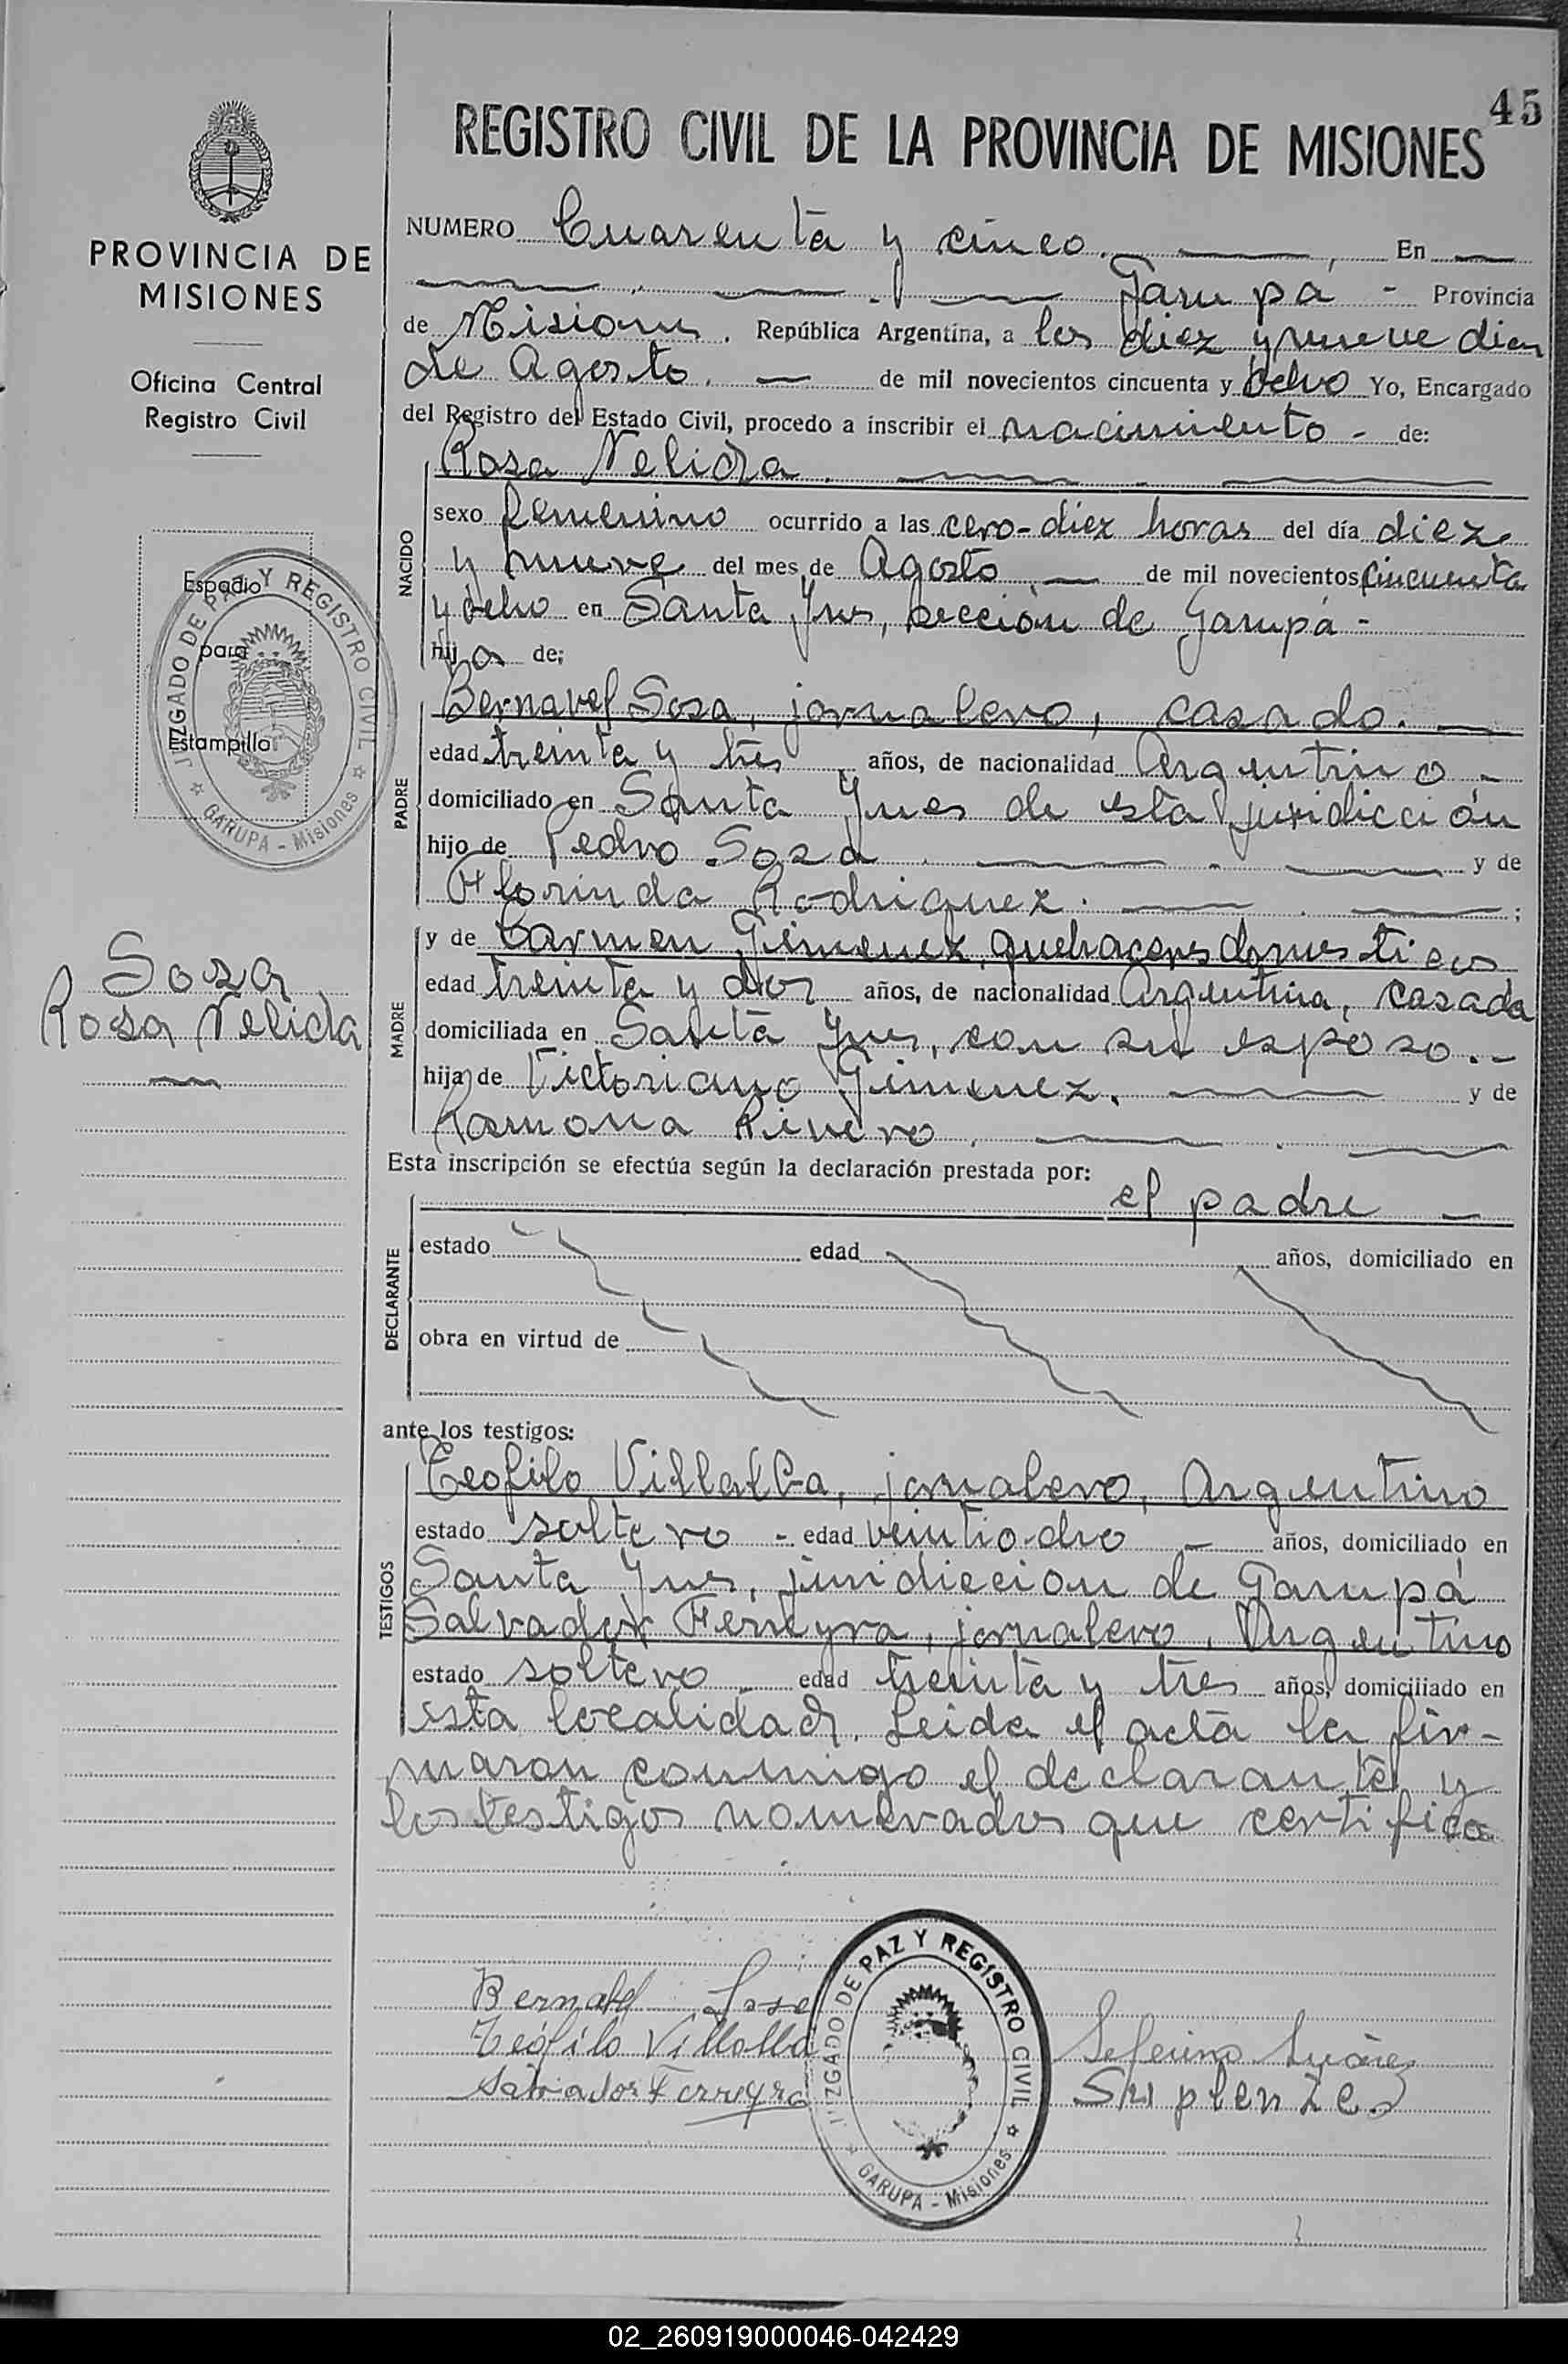 45
REGISTRO CIVIL DE LA PROVINCIA DE MISIONES
PROVINCIA DE
MISIONES
Oficina Central
Registro Civil
Espacio
para
Estampilla
JUZGADO DE PAZ Y REGISTRO CIVIL
GARUPA - Misiones
Sosa
Rosa Nelida
NUMERO Cuarenta y cinco. En
Garupá - Provincia
de Misiones. República Argentina, a los diez y nueve dias
de Agosto. de mil novecientos cincuenta y ocho Yo, Encargado
del Registro del Estado Civil, procedo a inscribir el nacimiento - de:
Rosa Nelida.
NACIDO
sexo femenino ocurrido a las cero-diez horas del día diez
y nueve del mes de Agosto de mil novecientos cincuenta
y ocho en Santa Ines, sección de Garupá -
hija de:
PADRE
Bernavel Sosa, jornalero, casado.
edad treinta y tres años, de nacionalidad Argentino -
domiciliado en Santa Ines de esta juridicción
hijo de Pedro Sosa. y de
Florinda Rodriguez. ;
MADRE
y de Carmen Gimenez, quehaceres domesticos
edad treinta y dos años, de nacionalidad Argentina, casada
domiciliada en Santa Ines, con su esposo.-
hija de Victoriano Gimenez. y de
Ramona Rivero.
Esta inscripción se efectúa según la declaración prestada por:
el padre -
DECLARANTE
estado edad años, domiciliado en
obra en virtud de
ante los testigos:
TESTIGOS
Teofilo Villalba, jornalero, Argentino
estado soltero - edad veintiocho - años, domiciliado en
Santa Ines, juridiccion de Garupá
Salvador Ferreyra, jornalero, Argentino
estado soltero - edad treinta y tres años, domiciliado en
esta localidad. Leida el acta la fir-
maron conmigo el declarante y
los testigos nombrados que certifico
Bernabel Sosa
Teófilo Villalba
Salvador Ferreyra
JUZGADO DE PAZ Y REGISTRO CIVIL
GARUPA - Misiones
Seferino Suárez
Suplente.
02_260919000046-042429